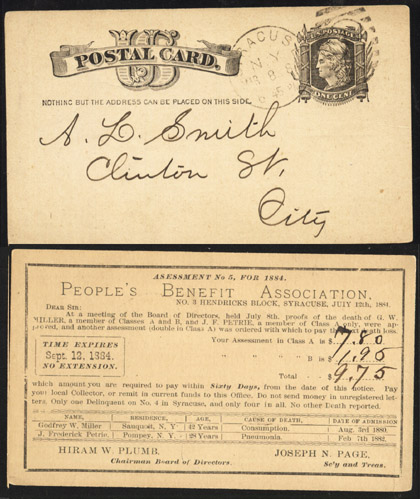 POSTAL CARD.
US
NOTHING BUT THE ADDRESS CAN BE PLACED ON THIS SIDE.
U.S. POSTAGE
ONE CENT
N.Y.
A. L. Smith
Clinton St.
City
ASESSMENT No 5, FOR 1884.
PEOPLE'S BENEFIT ASSOCIATION.
NO. 3 HENDRICKS BLOCK, SYRACUSE, JULY 12th, 1884.
DEAR SIR:
At a meeting of the Board of Directors, held July 8th, proofs of the death of G. W.
MILLER, a member of Classes A and B, and J. F. PETRIE, a member of Class A only, were ap-
proved, and another assessment (double in Class A) was ordered with which to pay the death loss.
TIME EXPIRES
Sept. 12, 1884.
NO EXTENSION.
Your Assessment in Class A is $ 7.80
" " " B is $ 1.95
Total - - $ 9.75
which amount you are required to pay within Sixty Days, from the date of this notice. Pay
your local Collector, or remit in current funds to this Office. Do not send money in unregistered let-
ters. Only one Delinquent on No. 4 in Syracuse, and only four in all. No other Death reported.
NAME, RESIDENCE, AGE, CAUSE OF DEATH, DATE OF ADMISSION
Godfrey W. Miller Sanquoit, N. Y 42 Years Consumption. Aug. 3rd 1880.
J. Frederick Petrie, Pompey, N. Y. 28 Years Pneumonia. Feb 7th 1882.
HIRAM W. PLUMB. JOSEPH N. PAGE.
Chairman Board of Directors. Sec'y and Treas.